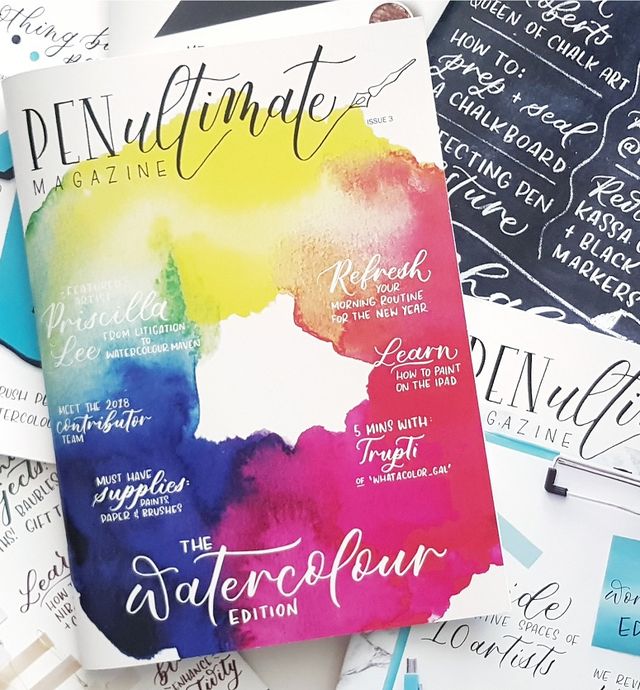 PENultimate
MAGAZINE
ISSUE 3
FEATURED
ARTIST
Priscilla
Lee
FROM LITIGATION
TO
WATERCOLOUR MAVEN
MEET THE 2018
contributor
TEAM
MUST HAVE
supplies:
PAINTS,
PAPER & BRUSHES
Refresh
YOUR
MORNING ROUTINE
FOR THE NEW YEAR
Learn
HOW TO PAINT
ON THE IPAD
5 MINS WITH:
Trupti
OF "WHATACOLOR_GAL"
THE
watercolour
EDITION
QUEEN OF CHALK ART
HOW TO:
prep + seal
A CHALKBOARD
KASSA
+ BLACK
MARKERS
PEN
10 artists
SPACES OF
BAUBLES
HOW